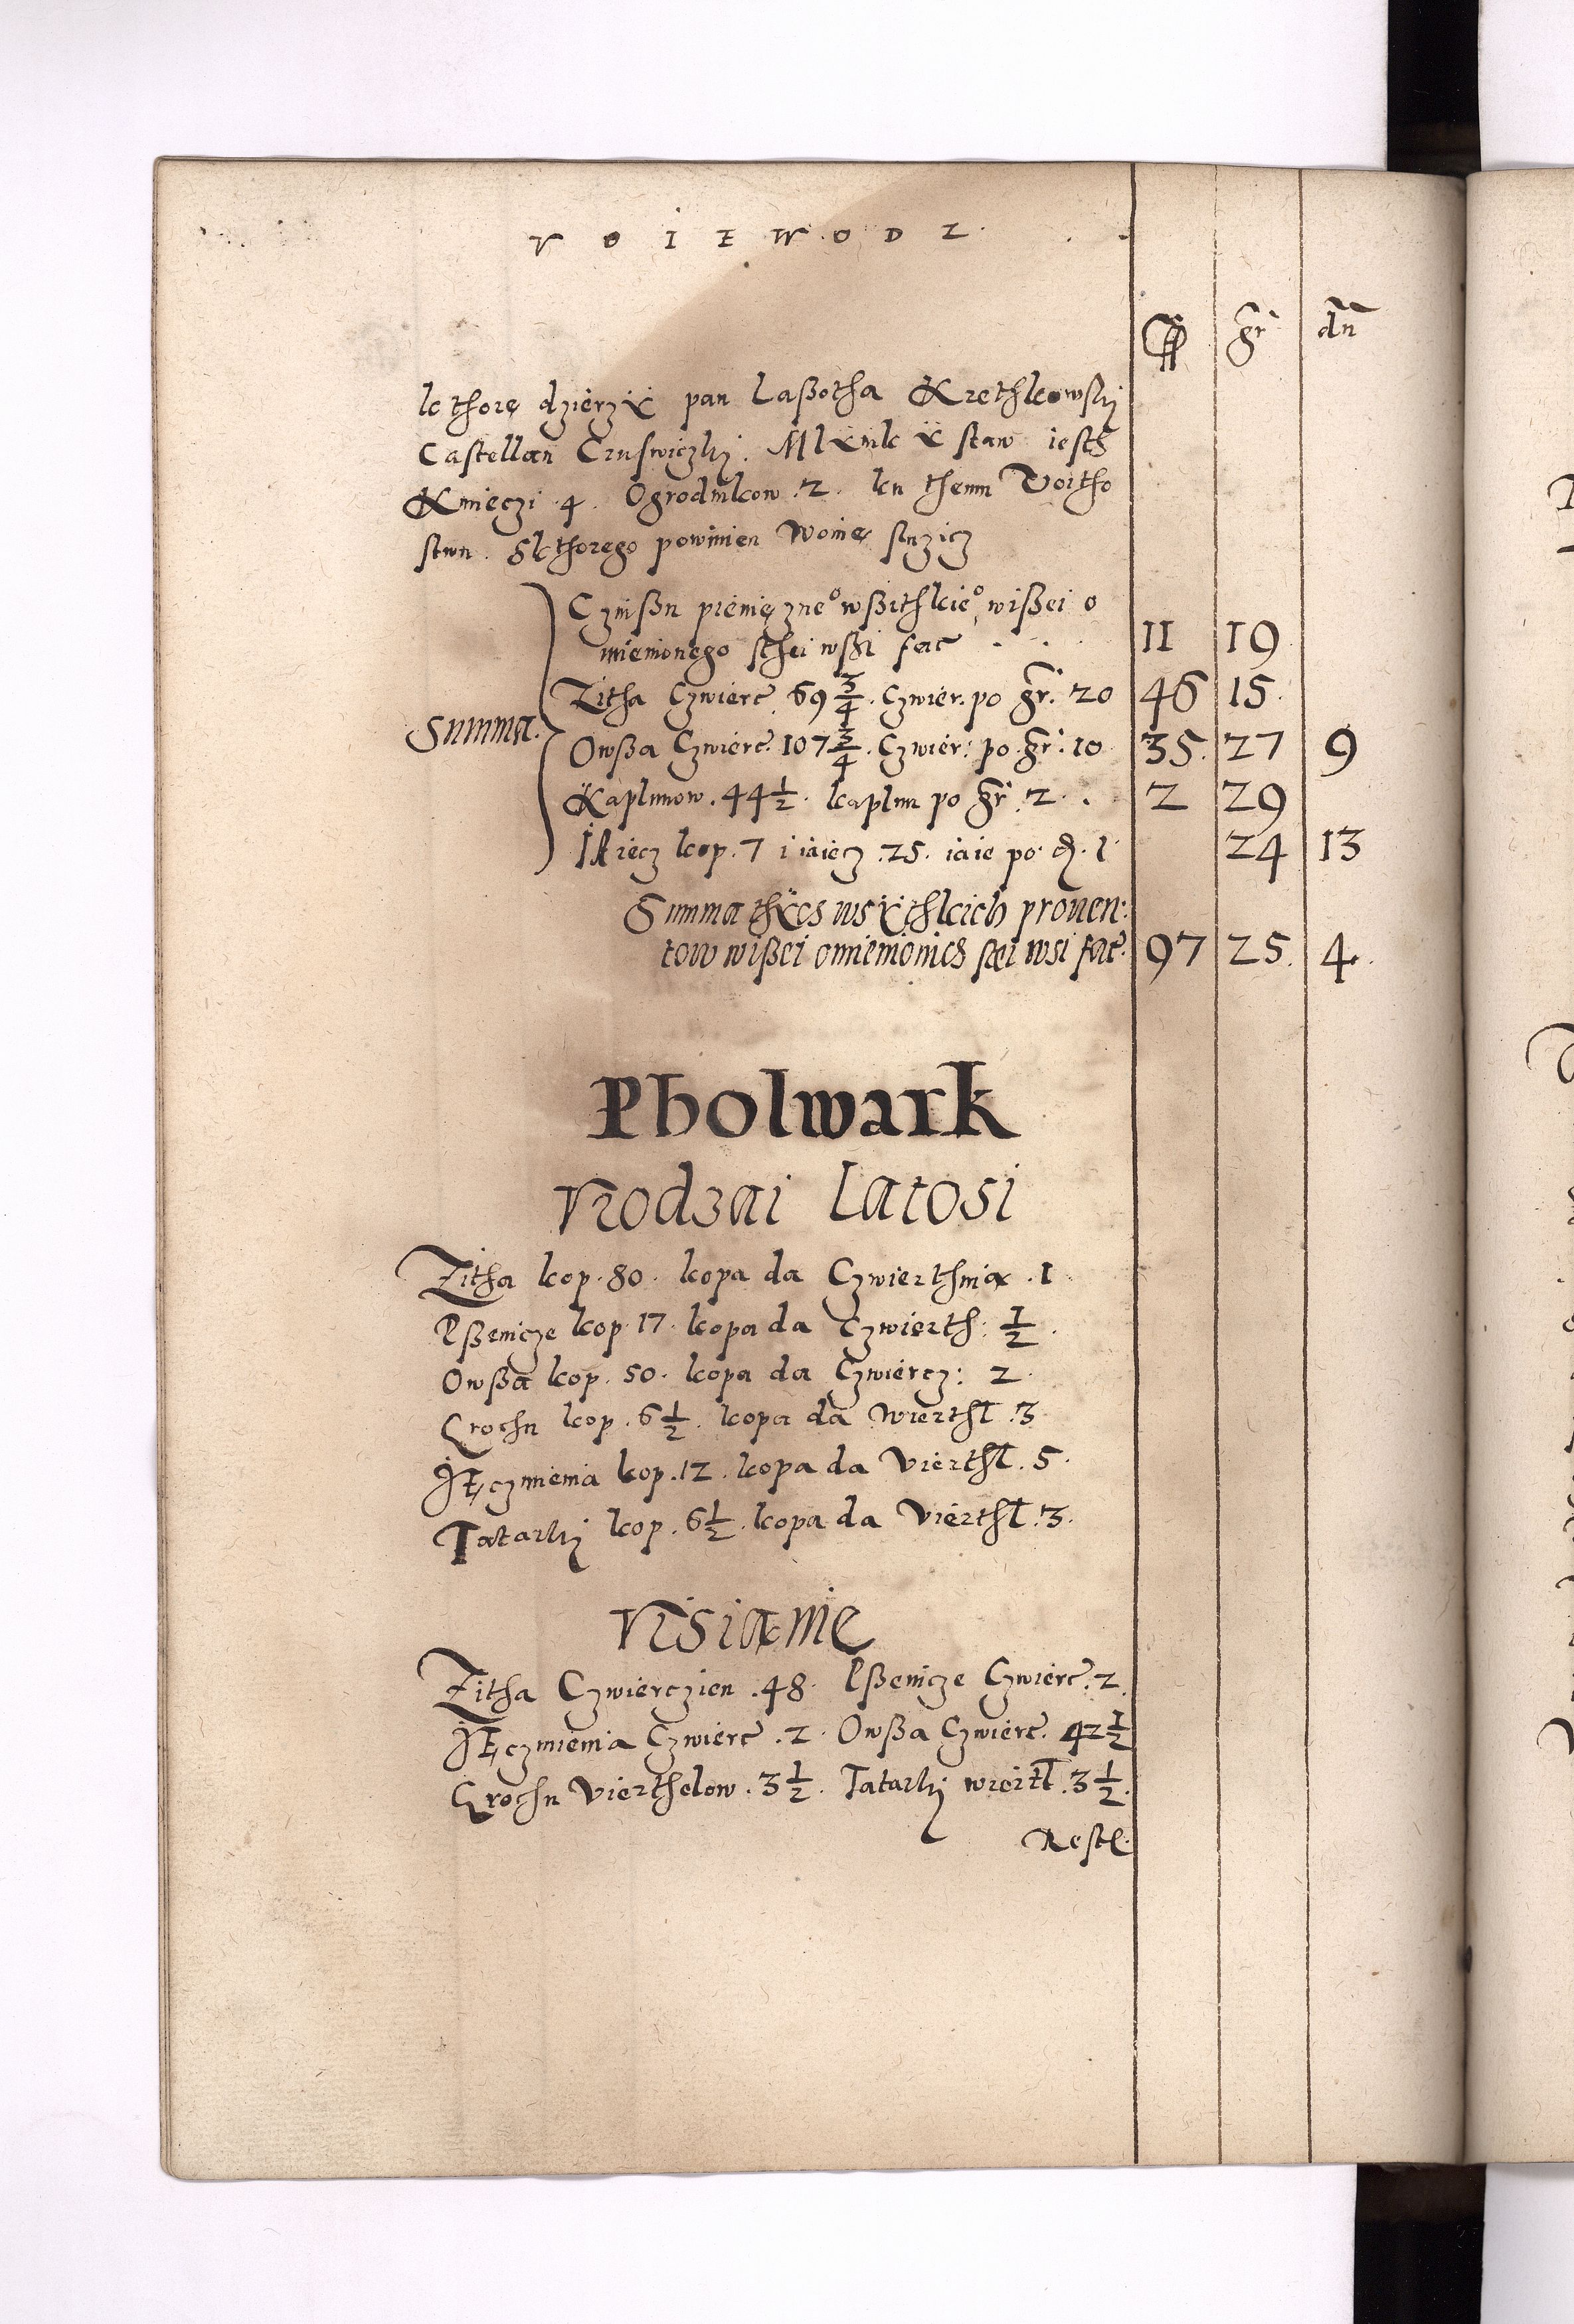 V O I E W O D Z.
ff gr dn
kthorę dzierzÿ pan Laßotha Krethkowskj
Castellan Cruswiczkj. Mlÿnk ÿ staw iesth
Kmieczi .4. Ogrodnkow .2. ku themu Voitho
stwu. Skthorego powinien Woinę služicz
Czinßu pieniężne° wßithkie° wißei o
mienionego sthei wßi fac̃ . . 11 19
Zitha Czwierc̃ 69 3/4. Czwier: po gr. 20 46 15
Summa. Owßa Czwierc̃. 107 3/4. Czwier: po gr. 10 35. 27 9
Kaplunow .44 1/2. kaplun po gr 2. . 2 29
IAiecz kop. 7 i iaiecz .25. iaie po d. 1 24 13
Summa thÿch wsÿthkich prouen:
tow wißei omienionich stei wsi fac̃. 97 25. 4.
Pholwark
Vrodzai Latosi
Zitha kop. 80. kopa da Czwierthnią .1
Pßenicze kop. 17. kopa da Czwierth: 1/2.
Owßa kop. 50. kopa da Czwiercz: 2.
Grochu kop. 6 1/2. kopa da Wierthl .3
JĘczmienia kop. 12. kopa da Vierthl. 5.
Tatarkj kop. 6 1/2. kopa da Vierthl .3.
VISianie
Zitha Czwierczien .48. Pßenicze Czwierc̃. 2.
JĘczmienia Czwierc̃ .2. Owßa Czwierc̃. 42 1/2
Grochu Vierthelow .3 1/2. Tatarkj wiertl .3 1/2.
Rest: